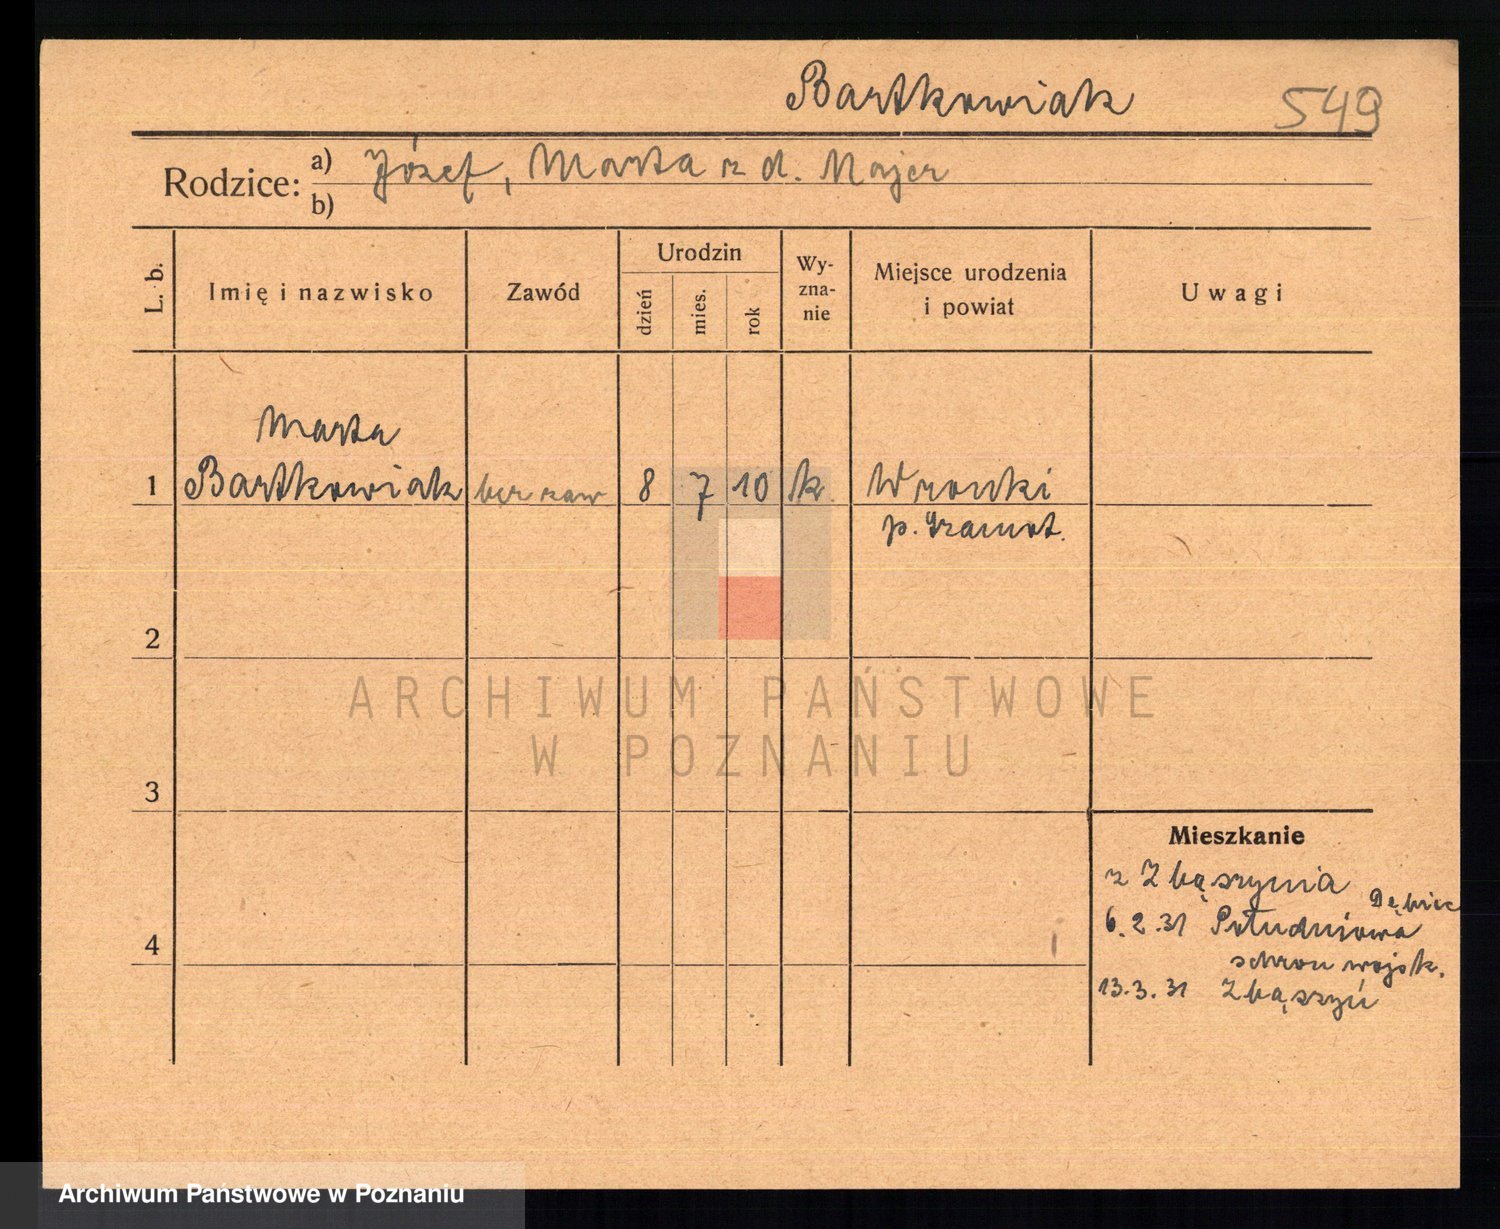 Bartkowiak 549
Rodzice: a) Józef, Marta z d. Majer
b)
L. b.
Imię i nazwisko
Zawód
Urodzin
dzień
mies.
rok
Wy-
zna-
nie
Miejsce urodzenia
i powiat
Uwagi
Marta
1 Bartkowiak bez zaw 8 7 10 k. Wronki
p. Szamot.
2
ARCHIWUM PAŃSTWOWE
W POZNANIU
3
Mieszkanie
z Zbąszynia
Dębiec
6.2.31 Południowa
schron wojsk.
13.3.31 Zbąszyń
4
Archiwum Państwowe w Poznaniu